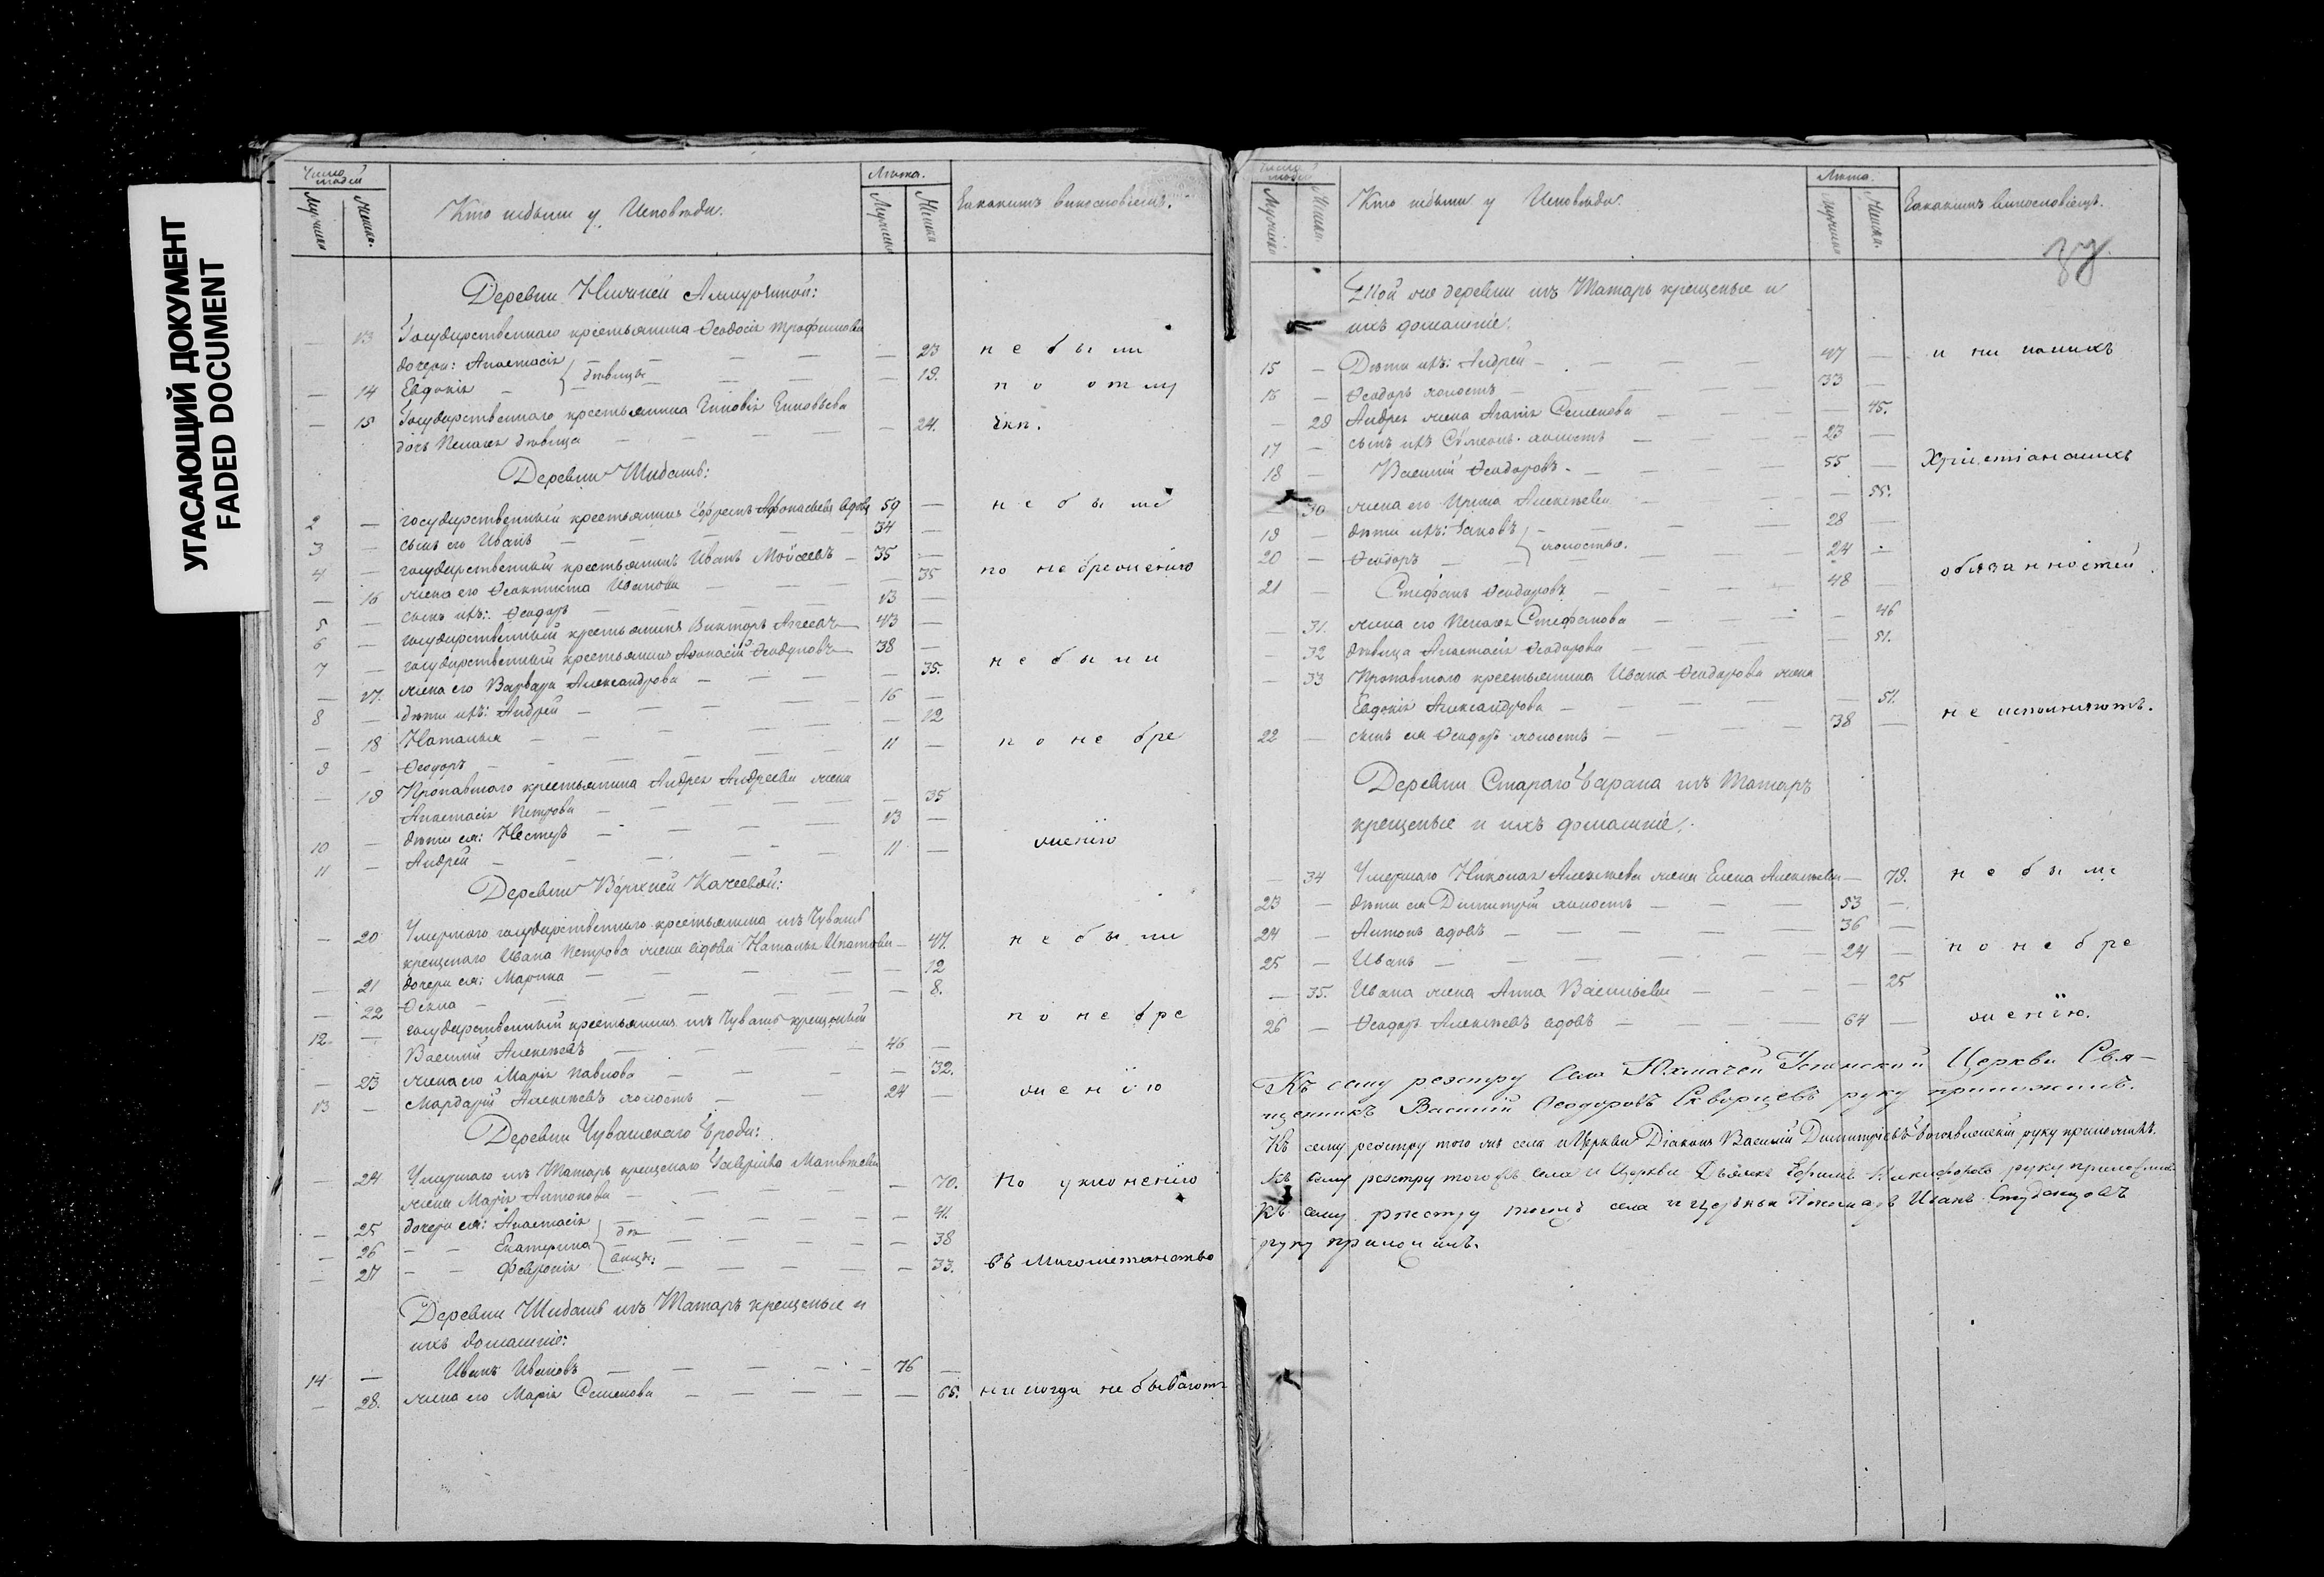 УГАСАЮЩИЙ ДОКУМЕНТ
FADED DOCUMENT
Число людей
Мужеска
Женска.
Кто небыли у Исповѣди.
Лѣта.
Мужеска
Женска
За какимъ винословіемъ.
Деревни Нижней
— 13 Государственнаго крестьянина Ѳеодосія Трофимова
дочери: Анастасія — — — — 23 небыли
— 14 Евдокія — } дѣвицы — — — 19. по отлу
— 15 Государственнаго крестьянина Зиновія Зиновьева
дочь Пелагея дѣвица — — — — 24. чкѣ.
Деревни Шибашъ:
2 — государственный крестьянинъ Ефремъ Афонасьевъ вдовъ 59 — небыли
3 — сынъ его Иванъ — — — 34 —
4 — государственный крестьянинъ Иванъ Мойсеевъ — 35 —
— 16 жена его Ѳеоктиста Иванова — — 35 по небреженію
5 — сынъ ихъ: Ѳеодоръ — — — 13 —
6 — государственный крестьянинъ Викторъ Агеевъ — 43 —
7 — государственный крестьянинъ Афонасій Ѳеодуловъ — 38 —
— 17. жена его Варвара Александрова — — 35. небыли
8 — дѣти ихъ: Андрей — — — 16 —
— 18 Наталья — — — — 12
9 — Ѳеодоръ — — — — 11 — по небре
— 19 Пропавшаго крестьянина Андрея Андреева жена
Анастасія Петрова — — — — 35
10 — дѣти ея: Несторъ — — — 13 —
11 — Андрей — — — — 11 — женію
Деревни Верхней Качеевой:
— 20 Умершаго государственнаго крестьянина изъ Чувашъ
крещенаго Ивана Петрова жена вдова Наталья Игнатьева — 47. небыли
— 21 дочери ея: Марина — — — — 12
— 22 Ѳекла — — — — — 8.
12 — государственный крестьянинъ изъ Чувашъ крещеный по небре
Василій Алексѣевъ — — — 46 —
— 23 жена его Марія Павлова — — — 32.
13 — Мардарій Алексѣевъ холостъ — 24 — женію
Деревни Чувашскаго Броди:
— 24 Умершаго изъ Татаръ крещенаго Гаврила Матвѣева
жена Марія Антонова — — — — 70. По уклоненію
— 25 дочери ея: Анастасія — — — — 41.
— 26 — — Екатерина } дѣ — — — 38
— 27 — — Февронія } вицы. — — — 33. въ Магометанство
Деревни Шибашъ изъ Татаръ крещеные и
ихъ домашніе:
14 — Иванъ Ивановъ — — — 76 —
— 28. жена его Марія Семенова — — — 65. никогда не бываютъ
Число людей
Мужеска
Женска.
Кто небыли у Исповѣди.
Лѣта.
Мужеска
Женска.
За какимъ винословіемъ.
Той же деревни изъ Татаръ крещеные и
ихъ домашніе.
15 — Дѣти ихъ: Андрей — — — 47 — и никакихъ
16 — Ѳеодоръ холостъ — — — 33 —
— 29 Андрея жена Агапія Семенова — — 45.
17 — сынъ ихъ Сѵмеонъ холостъ — — 23 —
18 — Василій Ѳеодоровъ. — — — 55 — Христіанскихъ
— 30 жена его Ирина Алексѣева — — — 55.
19 — дѣти ихъ: Іаковъ — — — 28 —
20 — Ѳеодоръ — } холостые. — — 24 —
21 — Стефанъ Ѳеодоровъ — — — 48 — обязанностей
— 31. жена его Пелагея Стефанова — — — 46
— 32 дѣвица Анастасія Ѳеодорова — — — 51.
— 33 Пропавшаго крестьянина Ивана Ѳеодорова жена
Евдокія Александрова — — — — 51.
22 — сынъ ея Ѳеодоръ холостъ — — 38 — не исполняютъ.
Деревни Стараго Барана изъ Татаръ
крещеные и ихъ домашніе.
— 34 Умершаго Николая Алексѣева жена Елена Алексѣева — 79. небыли
23 — дѣти ея Димитрій холостъ — — 53 —
24 — Антонъ вдовъ — — — 36 —
25 — Иванъ — — — — 24 — по небре
— 35. Ивана жена Анна Васильева — — — 25
26 — Ѳеодоръ Алексѣевъ вдовъ — — — 64 — женію.
Къ сему реэстру Села Юхмачей Успенской Церкви Свя-
щенникъ Василій Ѳеодоровъ Скворцевъ руку приложилъ.
Къ сему реэстру того же села и Церкви Діаконъ Василій Димитріевъ Богоявленскій руку приложилъ.
Къ сему реэстру того жъ села и Церкви Дьячекъ Ефимъ Никифоровъ руку приложилъ
Къ сему реестру тогожъ села и церкви Пономарь Иванъ Студенцовъ
руку приложилъ.